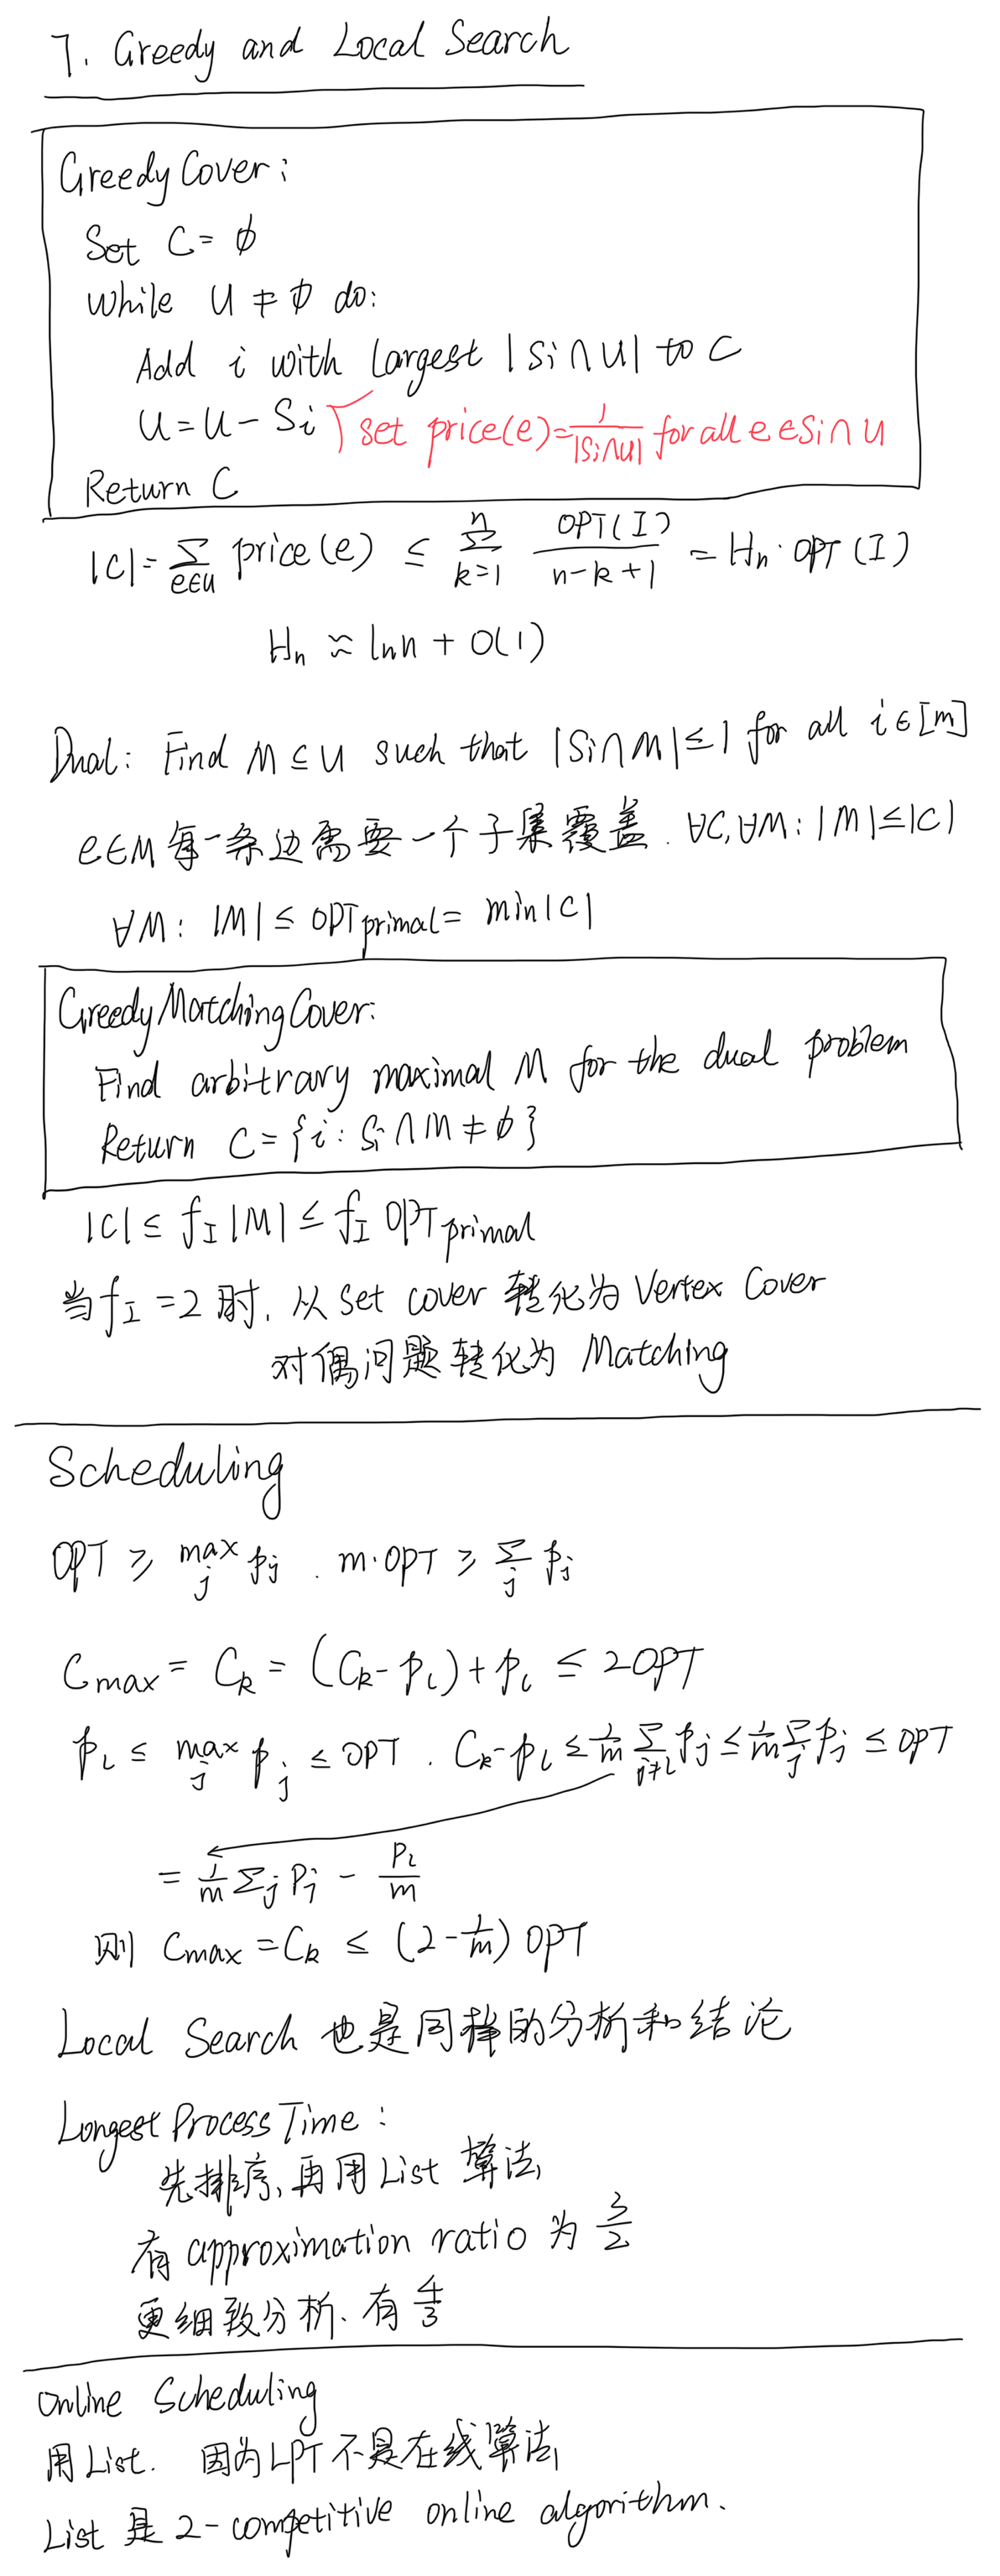 7. Greedy and Local Search
GreedyCover:
Set C = ∅
While U ≠ ∅ do:
Add i with largest |Si∩U| to C
U = U - Si set price(e) = 1/|Si∩U| for all e∈Si∩U
Return C
|C| = Σ_{e∈U} price(e) ≤ Σ_{k=1}^{n} OPT(I)/(n-k+1) = Hn · OPT(I)
Hn ≈ ln n + O(1)
Dual: Find M ⊆ U such that |Si∩M| ≤ 1 for all i∈[m]
e∈M 每一条边需要一个子集覆盖. ∀C,∀M: |M| ≤ |C|
∀M: |M| ≤ OPT_primal = min|C|
GreedyMatchingCover:
Find arbitrary maximal M for the dual problem
Return C = {i: Si∩M ≠ ∅}
|C| ≤ f_I |M| ≤ f_I OPT_primal
当 f_I = 2 时, 从 Set cover 转化为 Vertex Cover
对偶问题转化为 Matching
Scheduling
OPT ≥ max_j pj. m·OPT ≥ Σ_j pj
Cmax = Ck = (Ck - pl) + pl ≤ 2OPT
pl ≤ max_j pj ≤ OPT. Ck - pl ≤ 1/m Σ_{j≠l} pj ≤ 1/m Σ_j pj ≤ OPT
= 1/m Σj Pj - Pl/m
则 Cmax = Ck ≤ (2 - 1/m) OPT
Local Search 也是同样的分析和结论
Longest Process Time:
先排序, 再用 List 算法,
有 approximation ratio 为 3/2
更细致分析, 有 4/3
Online Scheduling
用 List. 因为 LPT 不是在线算法,
List 是 2-competitive online algorithm.